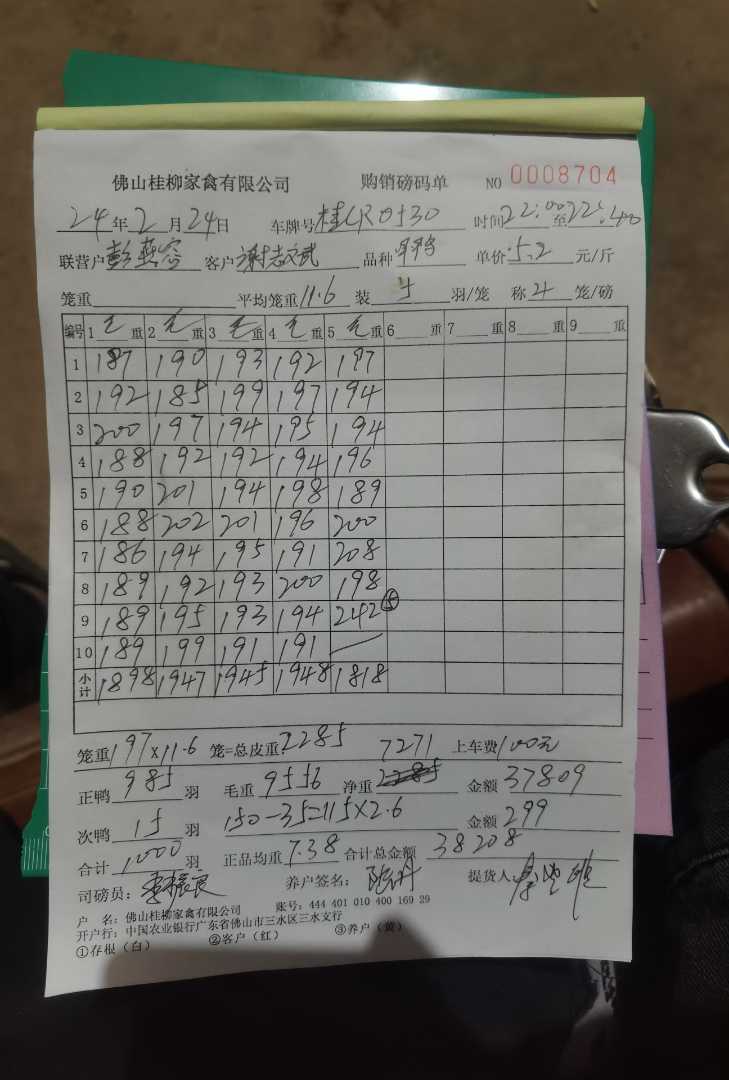 佛山桂柳家禽有限公司 购销磅码单 NO 0008704
24年2月24日 车牌号桂CR0530 时间22:00至22:40
联营户彭燕容 客户谢志斌 品种 单价5.2元/斤
笼重 平均笼重11.6 装5羽/笼 称4笼/磅
编号 1毛重 2毛重 3毛重 4毛重 5毛重 6重 7重 8重 9重
1 187 190 193 192 197
2 192 185 199 197 194
3 200 197 194 195 194
4 188 192 192 194 196
5 190 201 194 198 189
6 188 202 201 196 200
7 186 194 195 191 208
8 189 192 193 200 198
9 189 195 193 194 242⑤
10 189 199 191 191 —
小计 1898 1947 1945 1948 1818
笼重197×11.6 笼=总皮重2285 7271 上车费100元
正鸭985羽 毛重9556 净重2285 金额37809
次鸭15羽 150-35=115×2.6 金额299
合计1000羽 正品均重7.38 合计总金额38208
司磅员: 养户签名: 提货人:
户 名:佛山桂柳家禽有限公司 账号:444 401 010 400 169 29
开户行:中国农业银行广东省佛山市三水区三水支行
①存根(白) ②客户(红) ③养户(黄)